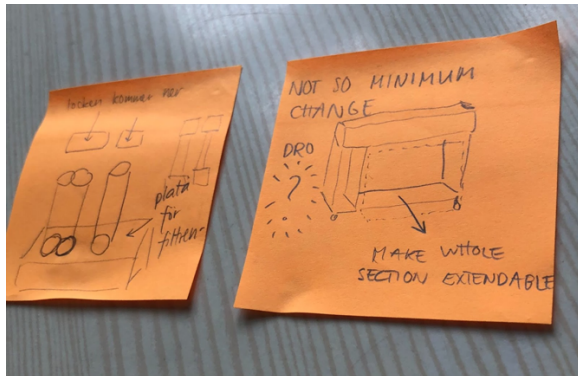 locken kommer ner
plats
för
filtren
NOT SO MINIMUM
CHANGE
DRO
?
MAKE WHOLE
SECTION EXTENDABLE